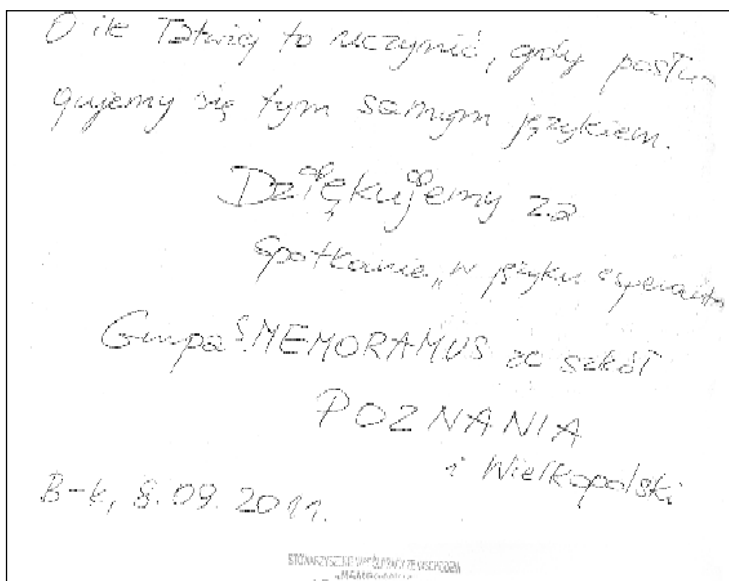 O ile łatwiej to uczynić, gdy posłu
gujemy się tym samym językiem.
Dziękujemy za
spotkanie „w języku esperanto
Grupa MEMORAMUS ze szkół
POZNANIA
i Wielkopolski
B-k, 8.09.2011.
STOWARZYSZENIE WSPÓŁPRACY ZE WSCHODEM